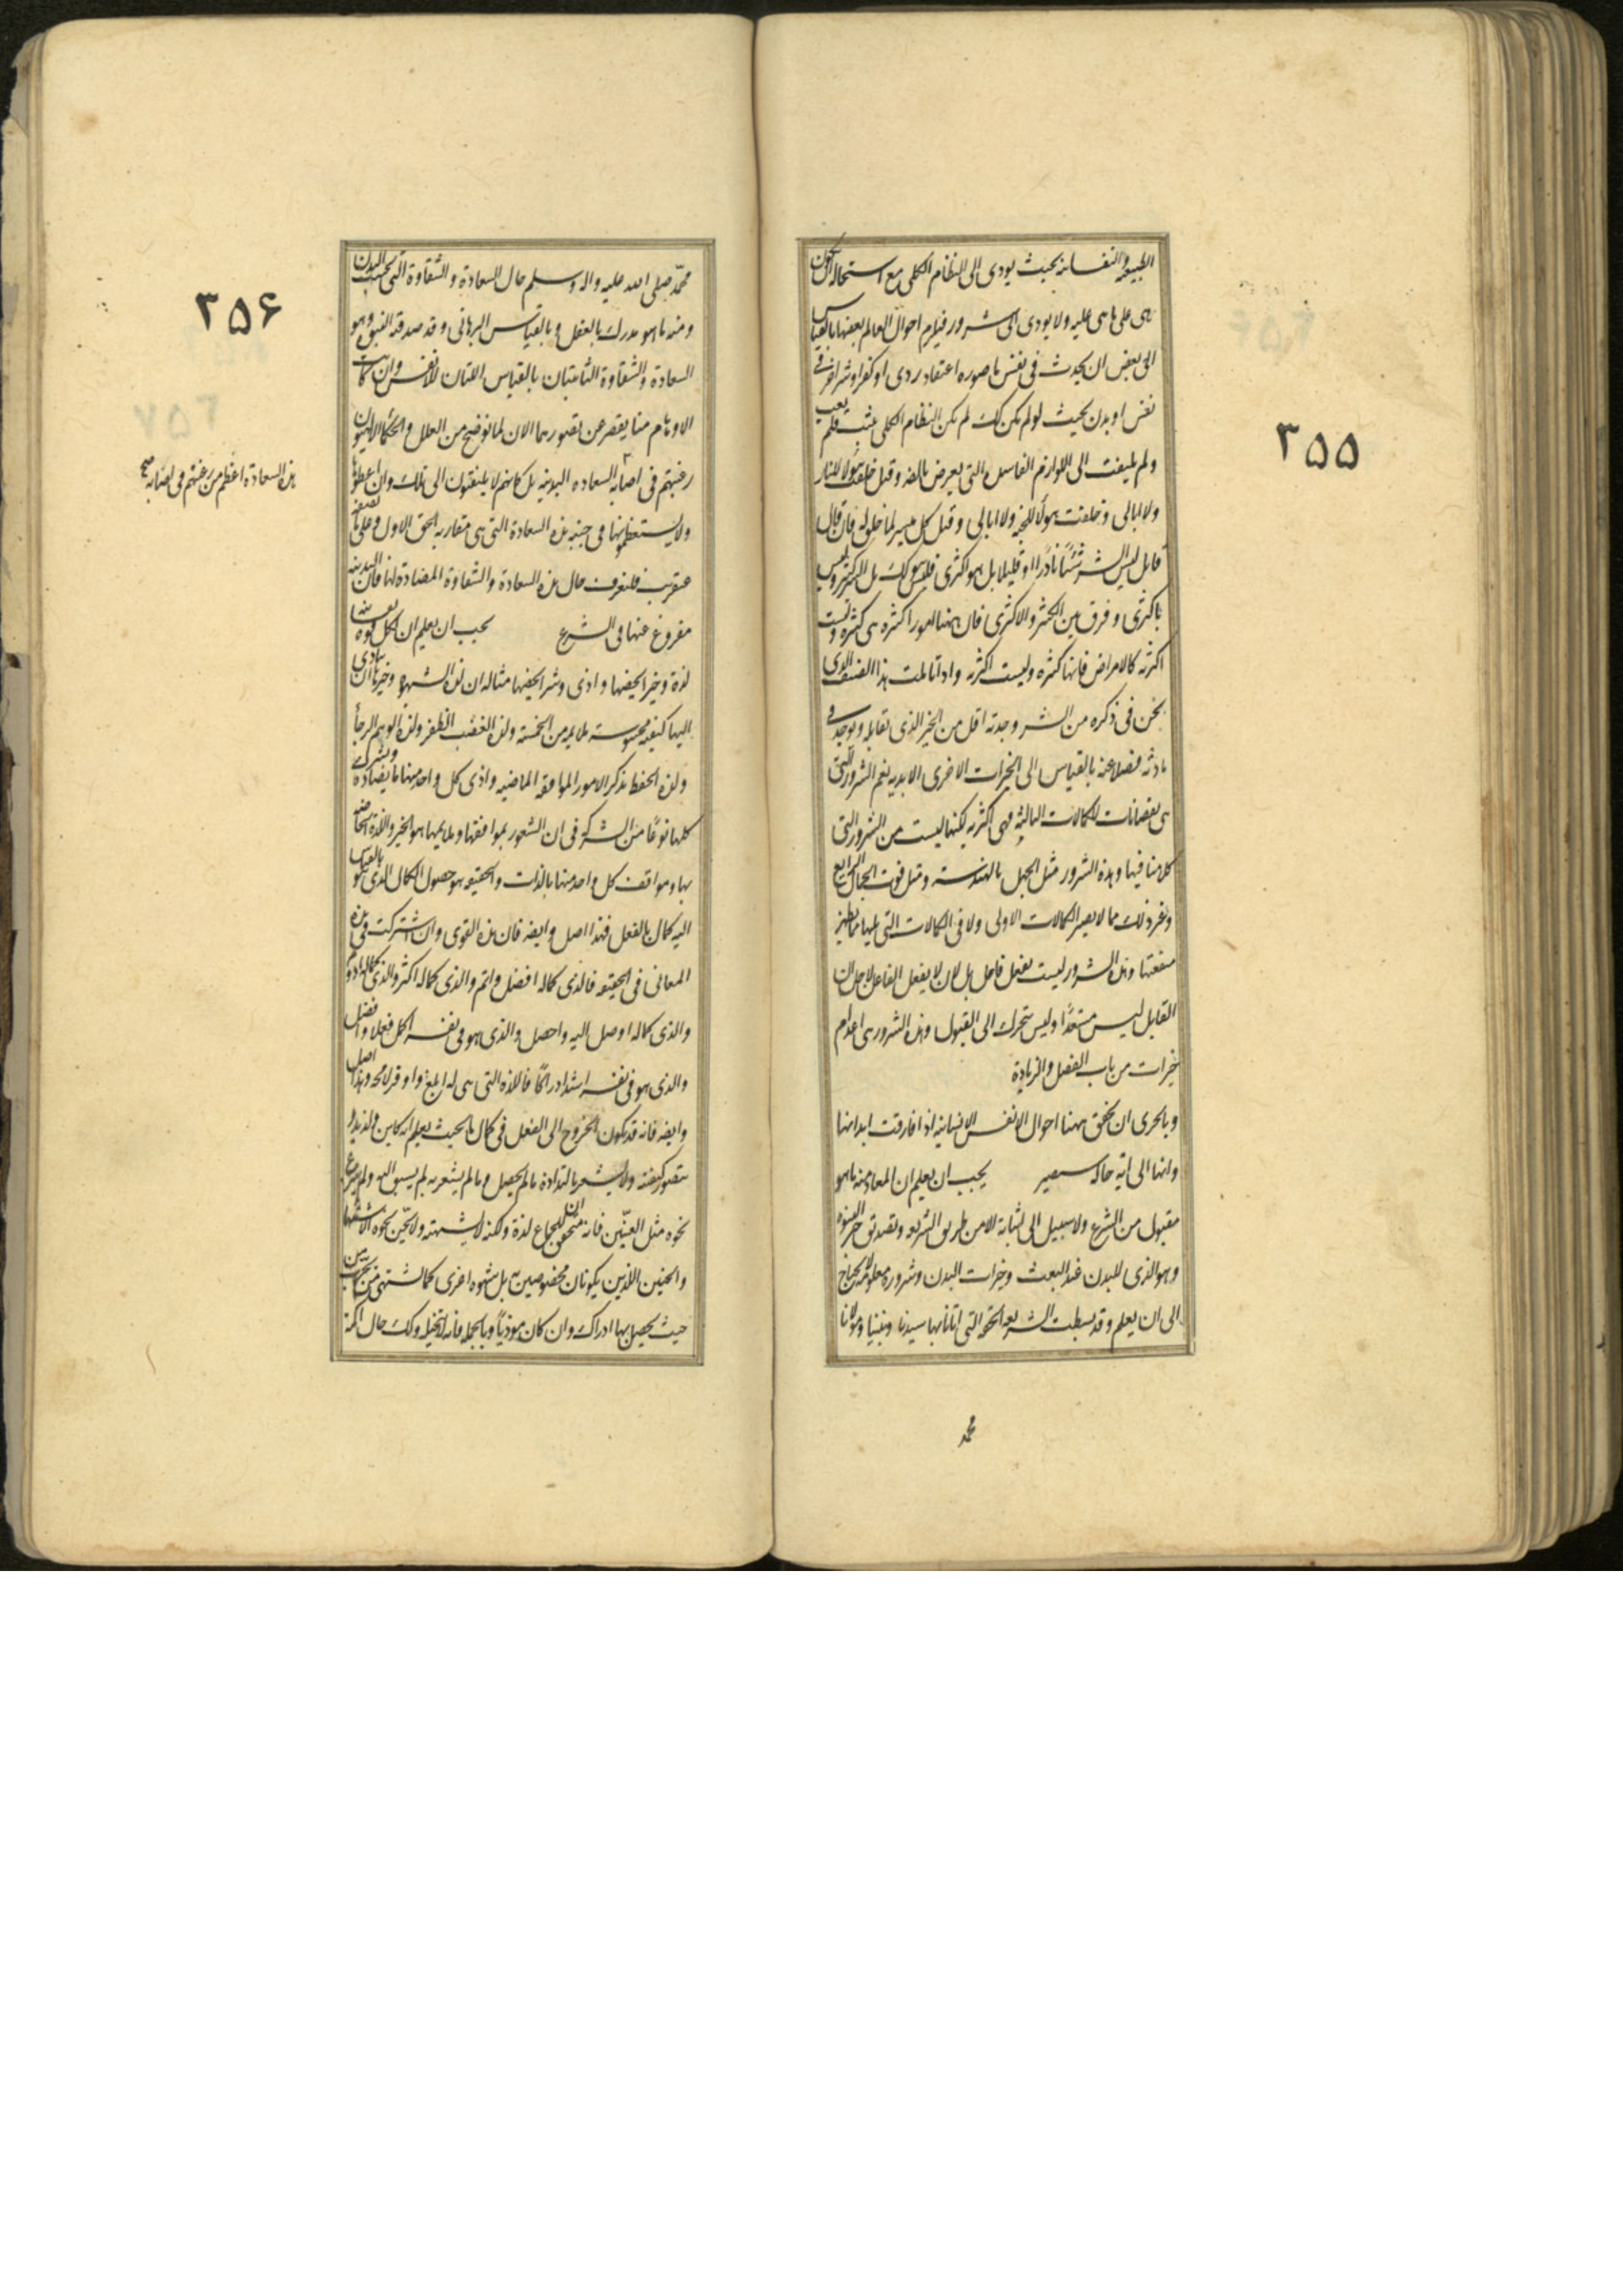 ۳۵۵
الطبيعية والنفسانية بحيث يودى الى النظام الكلى مع استحالة ان يكون
هى على ما هى عليه ولا يودى الى شرور فيلزم احوال العالم بعضها بالقياس
الى بعض ان يحدث فى نفس ما صورة اعتقاد ردى او كفر او شر اخر فى
نفس او بدن بحيث لو لم يكن كك لم يكن النظام الكلى يثبت فلم يعب
ولم يلتفت الى اللوازم الفاسدة التى يعرض بالضرورة وقيل خلقت هولاء للنار
ولا ابالى وخلقت هولاء للجنة ولا ابالى وقيل كل ميسر لما خلق له فان قال
قايل ليس الشر شيئا نادرا او قليلا بل هو اكثرى فليس هو كك بل الشر كثير وليس
باكثرى وفرق بين الكثير والاكثرى فان ههنا امورا كثيرة هى كثيرة وليست
اكثرية كالامراض فانها كثيرة وليست اكثرية واذا تاملت هذا الصنف الذى
نحن فى ذكره من الشر وجدته اقل من الخير الذى يقابله ويوجد فى
مادته فضلا عنه بالقياس الى الخيرات الاخرى الابدية نعم الشرور التى
هى نقصانات للكمالات الثانية فهى اكثرية لكنها ليست من الشرور التى
كلامنا فيها وهذه الشرور مثل الجهل بالهندسة ومثل فوت الجمال الرايع
وغير ذلك مما لا يضر الكمالات الاولى ولا فى الكمالات التى يليها مما يظهر
منفعتها وهذه الشرور ليست بفعل فاعل بل لان لا يفعل الفاعل لاجل ان
القابل ليس مستعدا او ليس يتحرك الى القبول وهذه الشرور هى اعدام
خيرات من باب الفضل والزيادة
وبالحرى ان نحقق ههنا احوال الانفس الانسانية اذا فارقت ابدانها
وانها الى اية حالة ستصير يجب ان يعلم ان المعاد منه ما هو
مقبول من الشرع ولا سبيل الى اثباته الا من طريق الشريعة وتصديق خبر النبوة
وهو الذى للبدن عند البعث وخيرات البدن وشروره معلومة لا يحتاج
الى ان يعلم وقد بسطت الشريعة الحقة التى اتانا بها سيدنا ونبينا ومولانا
محمد
۳۵۶
محمّد صلى الله عليه واله وسلم حال السعادة والشقاوة التى بحسب البدن
ومنه ما هو مدرك بالعقل وبالقياس البرهانى وقد صدقته النبوة وهو
السعادة والشقاوة الثابتتان بالقياس اللتان للانفس وان كانت
الاوهام منا يقصر عن تصورهما الان لما نوضح من العلل والحكماء الالهيون
رغبتهم فى اصابة السعادة البدنية بل كانهم لا يلتفتون الى تلك وان اعطوها
هذه السعادة اعظم من رغبتهم فى اصابة صح
ولا يستعظمونها فى جنبة هذه السعادة التى هى مقاربة الحق الاول وعلى ما نصفه
عنقريب فلنعرف حال هذه السعادة والشقاوة المضادة لها فان البدنية
مفروغ عنها فى الشرع يجب ان يعلم ان لكل قوة نفسانية
لذة وخيرا يخصها واذى وشرا يخصها مثاله ان لذة الشهوة وخيرها ان يتادى
اليها كيفية محسوسة ملايمة من الخمسة ولذة الغضب الظفر ولذة الوهم الرجاء
ولذة الحفظ تذكر الامور الموافقة الماضية واذى كل واحد منها ما يضاده ويشترك
كلها نوعا من الشركة فى ان الشعور بموافقتها وملايمها هو الخير واللذة الخاصة
بها وموافق كل واحد منها بالذات والحقيقة هو حصول الكمال الذى هو بالقياس
اليه كمال بالفعل فهذا اصل وايضه فان هذه القوى وان اشتركت فى هذه
المعانى فى الحقيقة فالذى كماله افضل واتم والذى كماله اكثر والذى كماله ادوم
والذى كماله اوصل اليه واحصل والذى هو فى نفسه اكمل فعلا وافضل
والذى هو فى نفسه اشد ادراكا فاللذة التى هى له ابلغ واوفر لا محة وهذا اصل
وايضه فانه قد يكون الخروج الى الفعل فى كمال ما بحيث يعلم انه كاين ولذيذ ولا
يتصور كيفيته ولا يشعر بالتذاذه ما لم يحصل وما لم يشعر به لم يشتق اليه ولم ينزع
نحوه مثل العنّين فانه متحقق ان للجماع لذة ولكنه لا يشتهيه ولا يحن نحوه الاشتهاء
والحنين اللذين يكونان مخصوصين به بل شهوة اخرى كما يشتهى من يجرب من
حيث يحصل بها ادراك وان كان موذيا وبالجملة فانه لا يتخيله وكك حال الاكمه